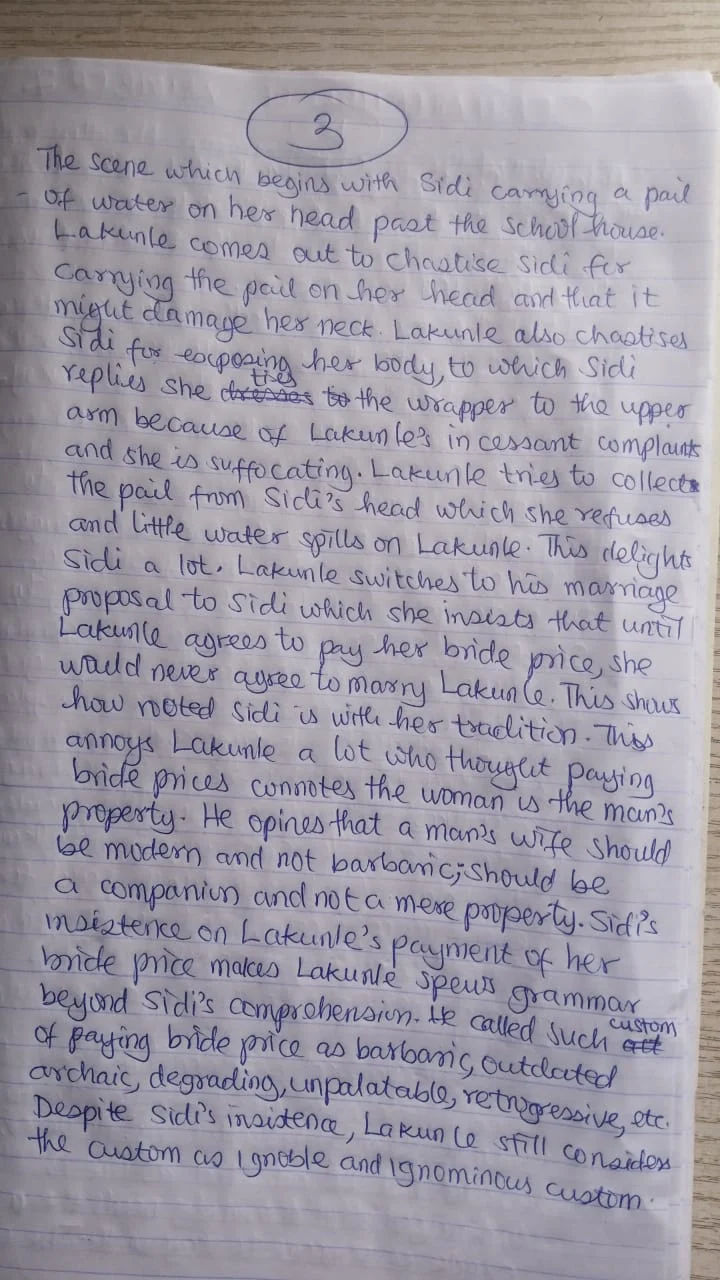 3
The scene which begins with Sidi carrying a pail
- of water on her head past the school house.
Lakunle comes out to chastise Sidi for
carrying the pail on her head and that it
might damage her neck. Lakunle also chastises
Sidi for exposing her body, to which Sidi
replies she dresses to ties the wrapper to the upper
arm because of Lakunle's incessant complaints
and she is suffocating. Lakunle tries to collects
the pail from Sidi's head which she refuses
and little water spills on Lakunle. This delights
Sidi a lot. Lakunle switches to his marriage
proposal to Sidi which she insists that until
Lakunle agrees to pay her bride price, she
would never agree to marry Lakunle. This shows
how rooted Sidi is with her tradition. This
annoys Lakunle a lot who thought paying
bride prices connotes the woman is the man's
property. He opines that a man's wife should
be modern and not barbaric; should be
a companion and not a mere property. Sidi's
insistence on Lakunle's payment of her
bride price makes Lakunle spews grammar
beyond Sidi's comprehension. He called such act custom
of paying bride price as barbaric, outdated
archaic, degrading, unpalatable, retrogressive, etc.
Despite Sidi's insistence, Lakunle still considers
the custom as ignoble and ignominous custom.